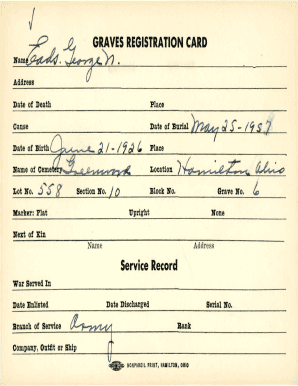 GRAVES REGISTRATION CARD
Name Eads. George N.
Address
Date of Death Place
Cause Date of Burial May 25-1957
Date of Birth June 21-1926 Place
Name of Cemetery Greenwood Location Hamilton Ohio
Lot No. 558 Section No. 10 Block No. Grave No. 6
Marker: Flat Upright None
Next of Kin
Name Address
Service Record
War Served In
Date Enlisted Date Discharged Serial No.
Branch of Service Army Rank
Company, Outfit or Ship
NONPAREIL PRINT, HAMILTON, OHIO